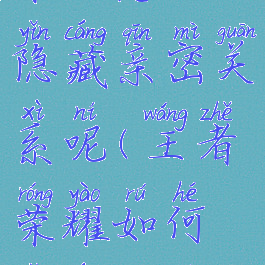 yǐn cáng qīn mì guān
隐藏亲密关
xì ní wáng zhě
系呢(王者
róng yào rú hé
荣耀如何